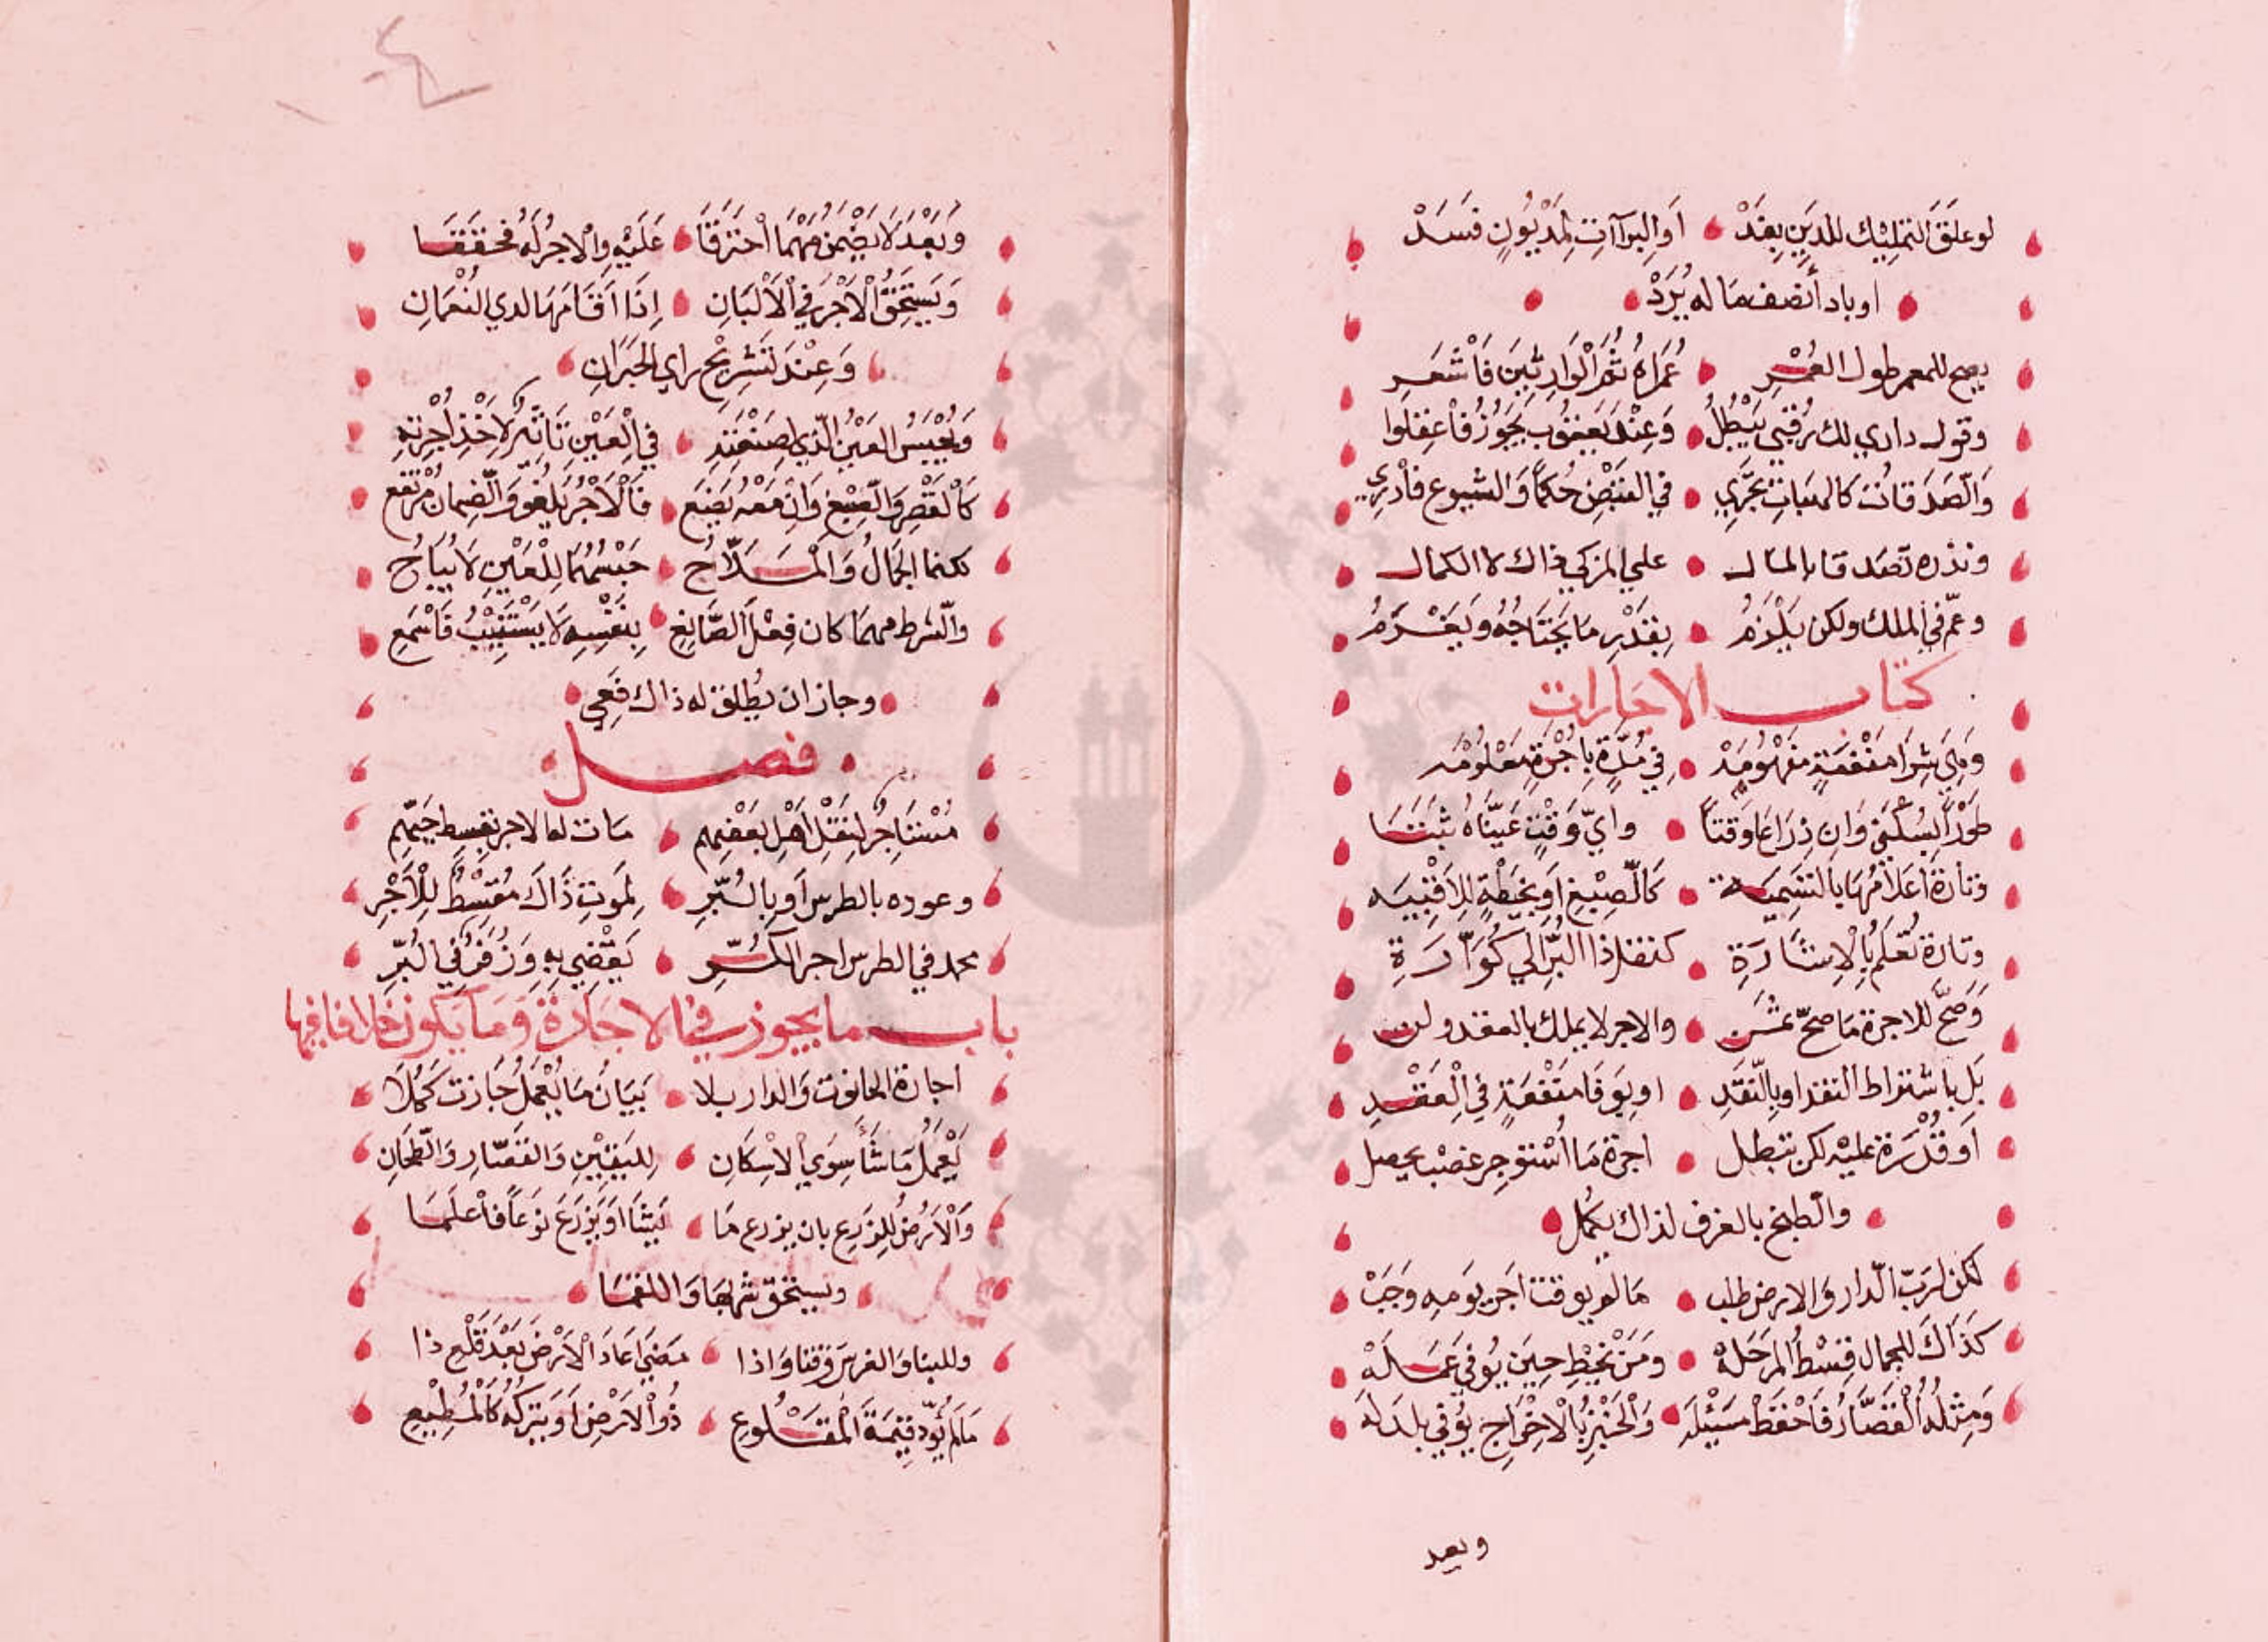 لو علق التمليك للدين بغد أو البراآت لمديون فسد
او باد أنصف ما له يرد
يصح للمعمر طول العمر عمراه ثم الوارثين فاشعر
وقول داري لك رقبى يبطل وعند يعقوب يجوز فاعقلوا
والصدقات كالهبات تجري في القبض حكما والشيوع فادري
ونذره تصدقا بالمال على المزكي ذاك لا الكمال
وعم في الملك ولكن يلزم بقدر ما يحتاجه ويغرم
كتاب الاجارات
وهي شرا منفعة مفهومه في مدة باجرة معلومه
طورا بسكنى وان ذراعا وقتا واي وقت عيناه ثبتا
وتارة اعلامها بالتسميه كالصبغ او بخيطة للاقبيه
وتارة تعلم بالاشارة كنقل ذا البر الي كوارة
وصح للاجرة ما صح ثمن والاجر لا يملك بالعقد ولن
بل باشتراط النقد او بالنقد او بوفا منفعة في العقد
او قدرة عليه لكن تبطل اجرة ما استوجر غصب يحصل
والطبخ بالغرف لذاك يكمل
لكن لرب الدار والارض طلب ما لم يوقت اجر يومه وجب
كذاك للجمال قسط المرحله ومن يخيط حين يوفي عمله
ومثله القصار فاحفظ مسئله والخبز بالاخراج يوفي بلد له
وبعد
وبعد لا يضمن مهما احترقا عليه والاجر له فحققا
ويستحق الاجر في الالبان اذا اقامها لدي النعمان
وعند تشريج راي الحبران
ويحبس العين الذي لصنعته في العين تاثير لاخذ اجرته
كالقصر والصبغ وان معه يضع فالاجر يلغو والضمان مرتفع
لكنما الجمال والملاح حبسهما للعين لا يباح
والشرط مهما كان فعل الصانع بنفسه لا يستنيب فاسمع
وجاز ان يطلق له ذاك فعي
فصل
مستاجر لنقل اهل بعضهم مات له الاجر بقسط جيهم
وعوده بالطرس او بالبر لموت ذاك مقسط للاجر
محمد في الطرس اجر الكر يقضي به وزفر في البر
باب ما يجوز في الاجارة وما يكون خلافا فيها
اجارة الحانوت والدار بلا بيان ما يعمل جازت كملا
يعمل ما شا سوي الاسكان للقين والقصار والطحان
والارض للزرع بان يزرع ما يشا او يزرع نوعا فاعلما
ويستحق شربها واللقما
وللبنا والغرس وقتا واذا مضى اعاد الارض بعد قلع ذا
ما لم يود قيمة المقلوع ذو الارض او يتركه كالمطيع